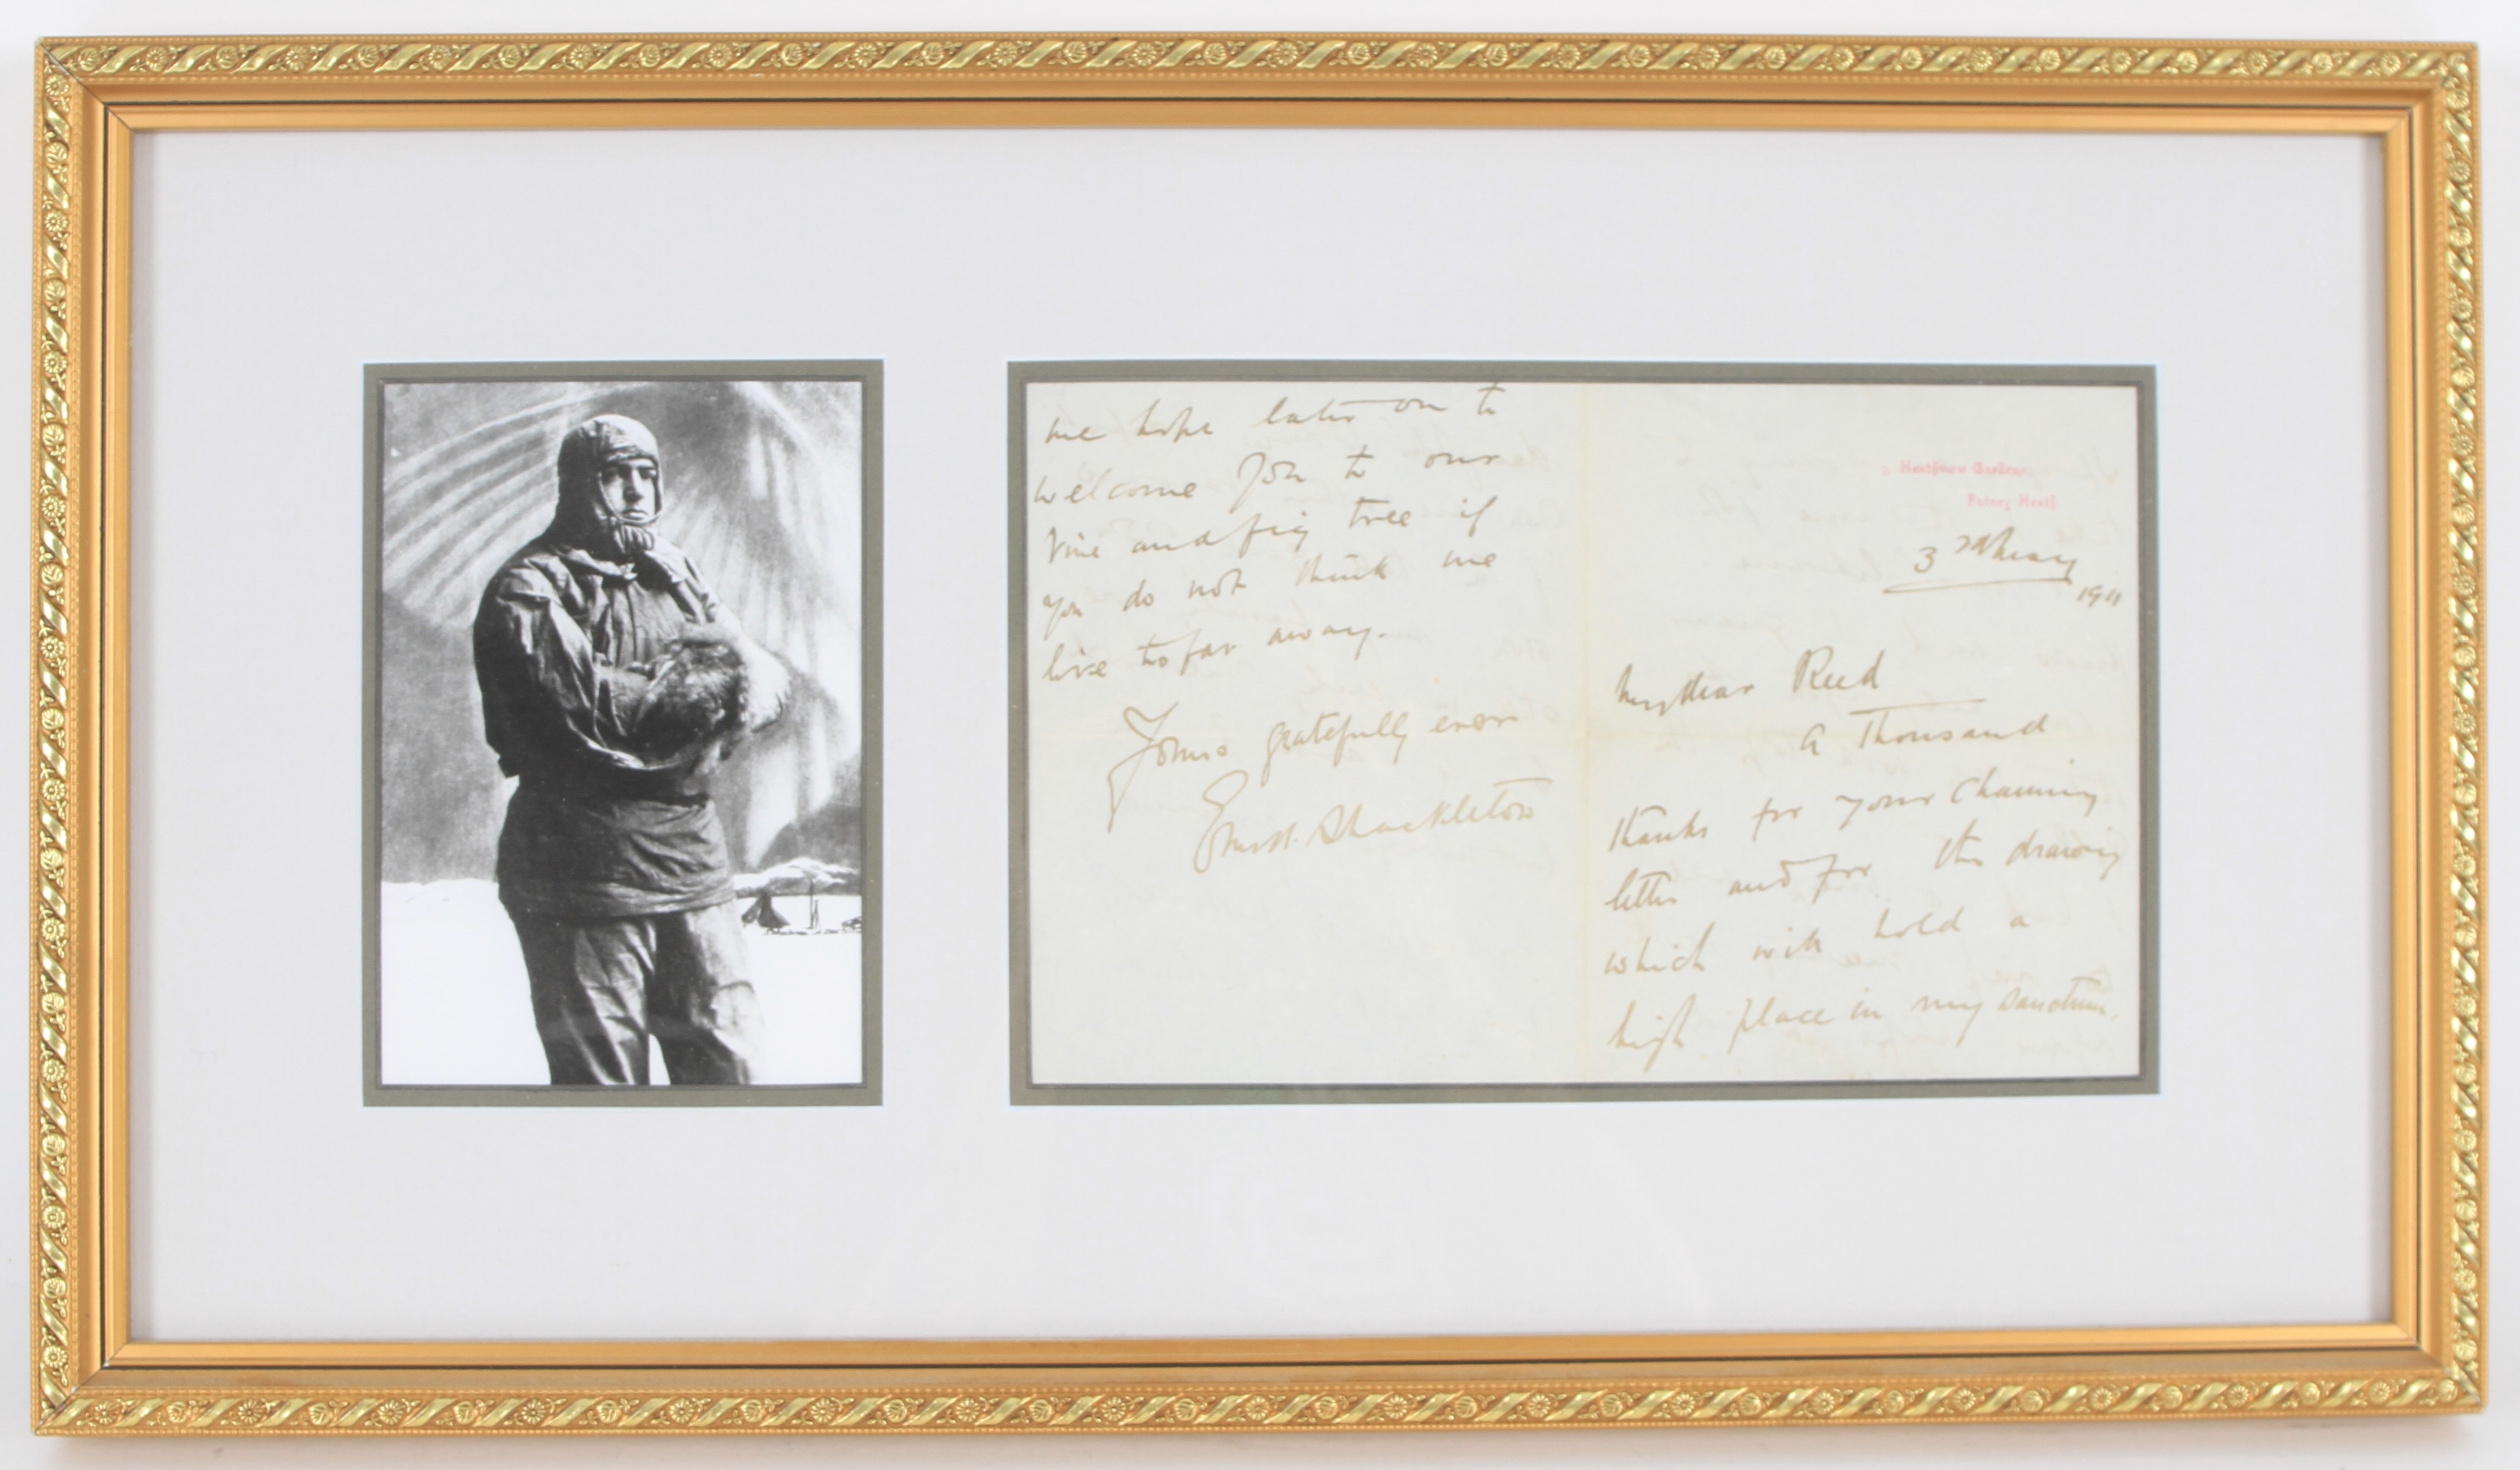 we hope later on to
welcome you to our
Vine and fig tree if
you do not think we
live too far away.
Yours gratefully ever
Ernest. Shackleton
Heathview Gardens
Putney Heath
3rd
1911
My dear Reed
A Thousand
thanks for your charming
letter and for the drawing
which will hold a
high place in my sanctum.